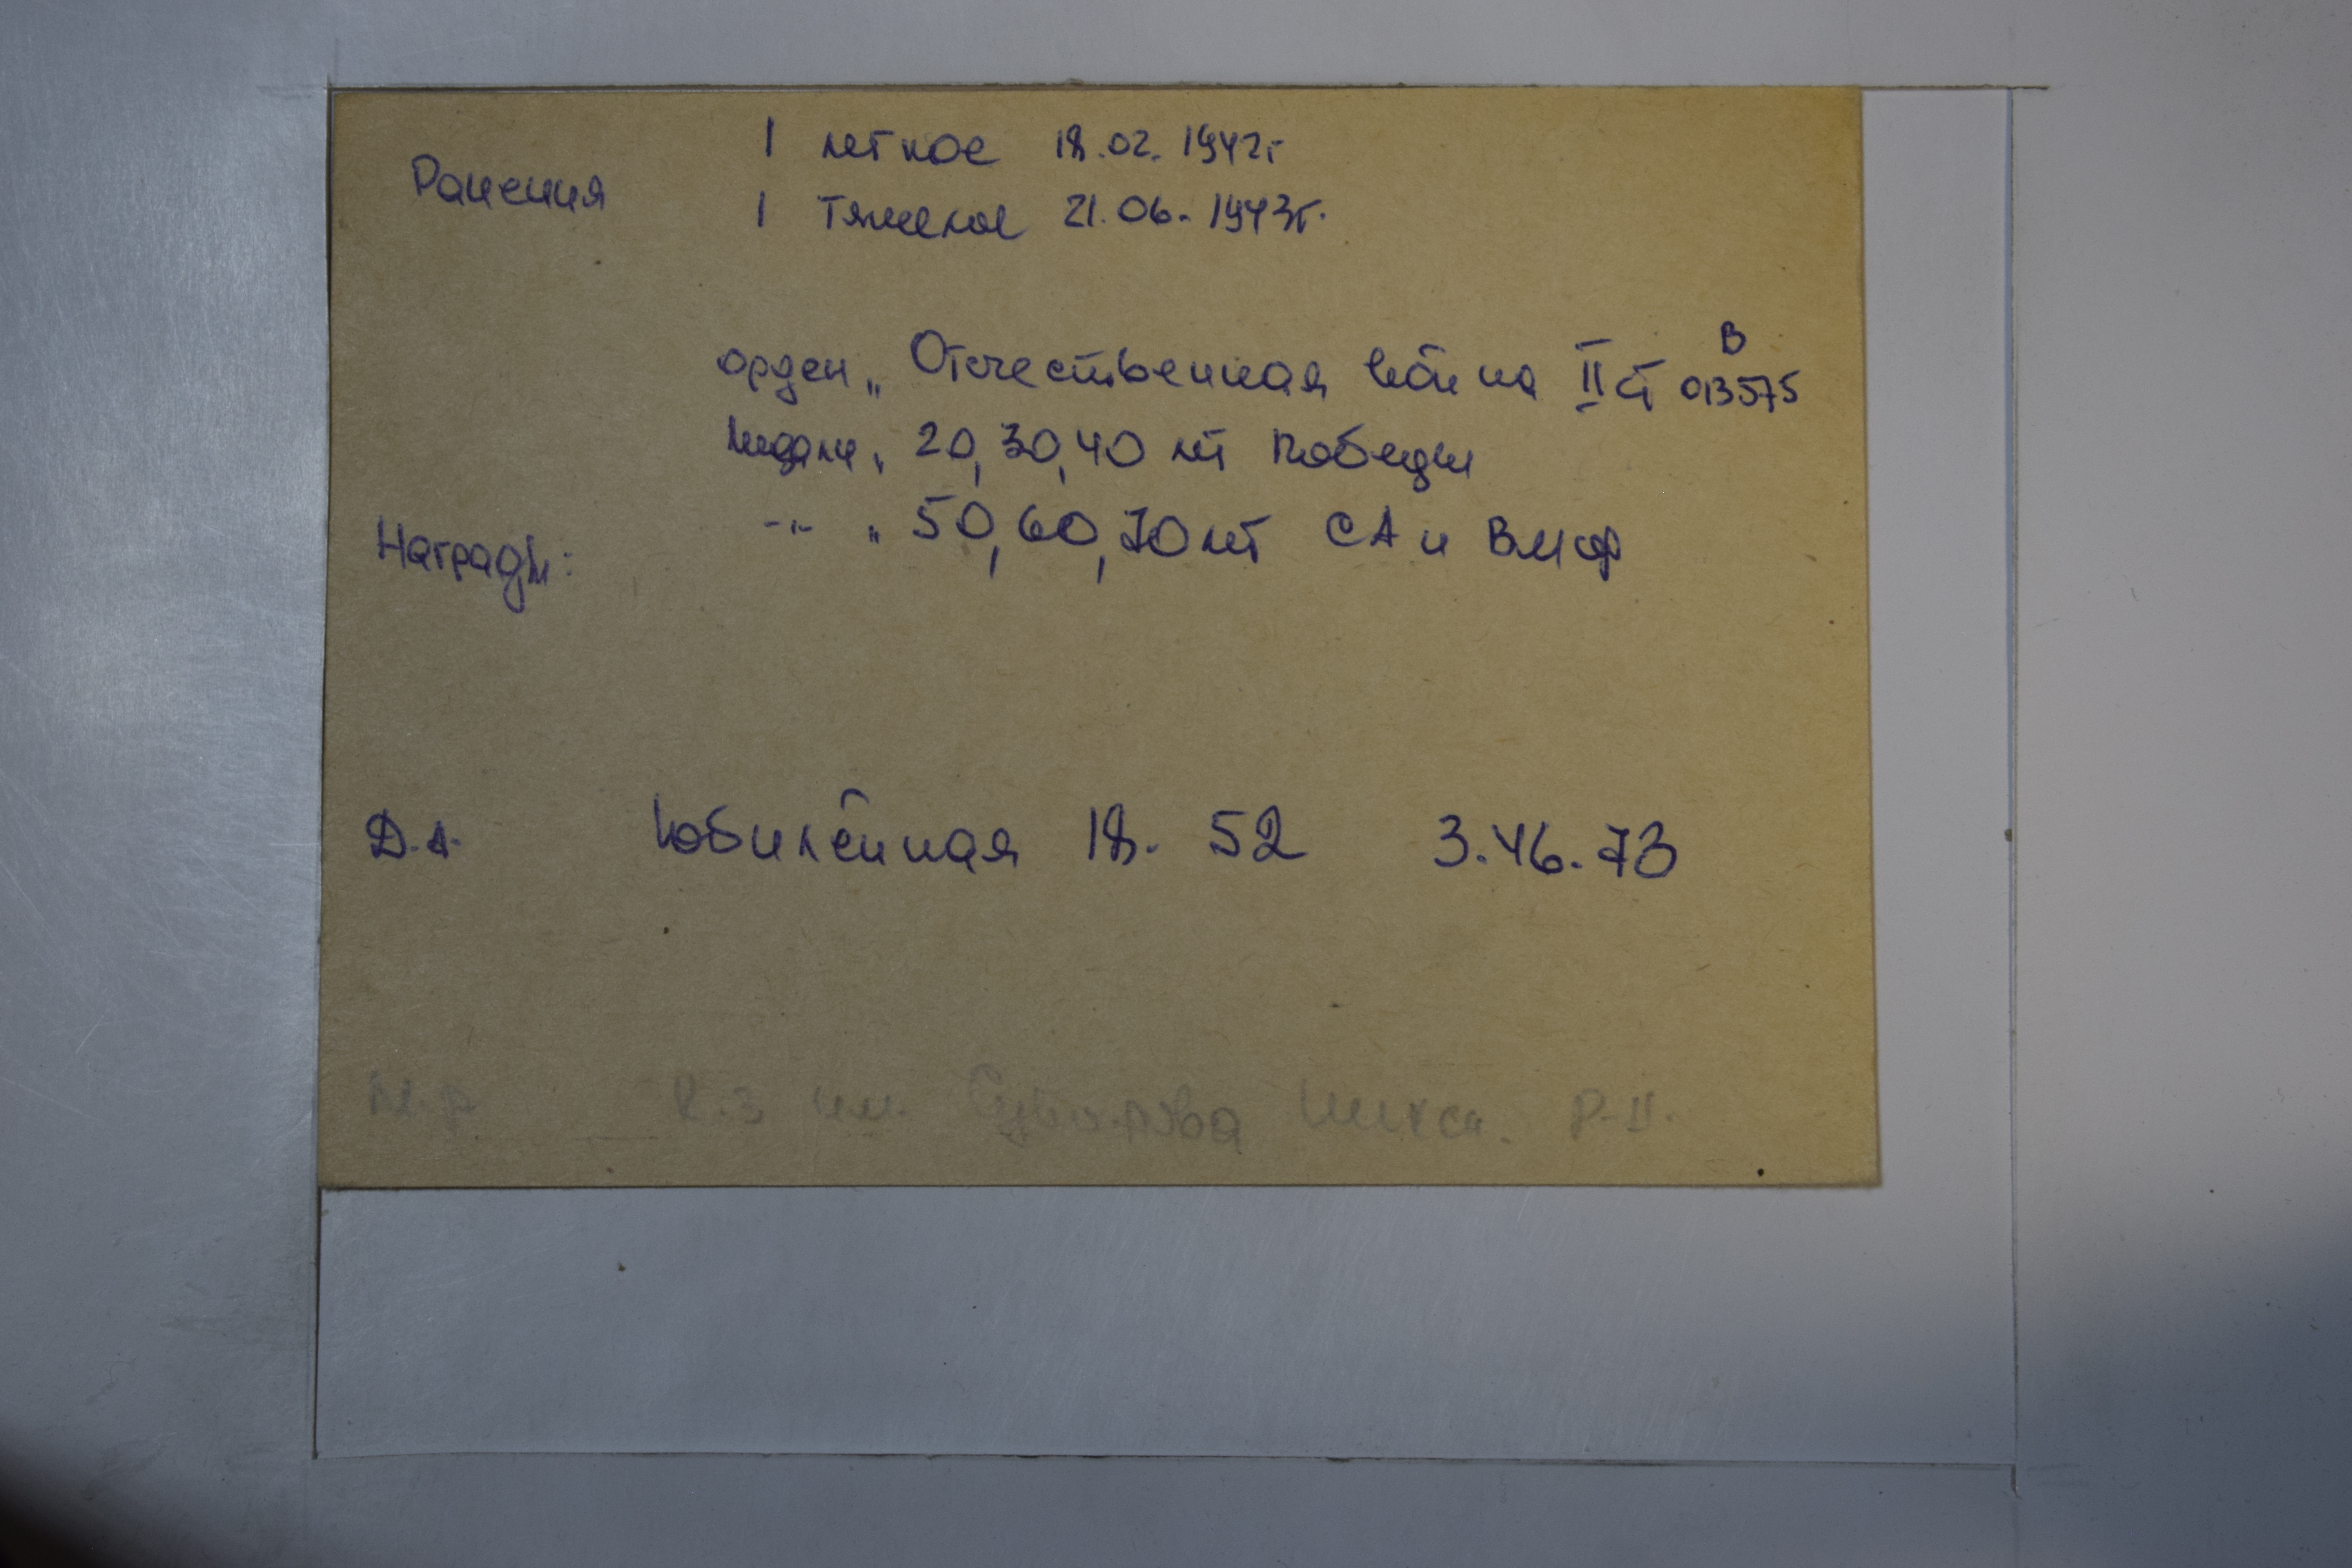 Ранения
1 легкое 18.02.1942г
1 тяжелое 21.06.1943г.
Награды:
орден „ Отечественная война II ст В 013575
медали „ 20, 30, 40 лет Победы
-"- „ 50, 60, 70 лет СА и ВМФ
Д.А. Юбилейная 18. 52 3.46.73
М.Р. К.З им. Суворова